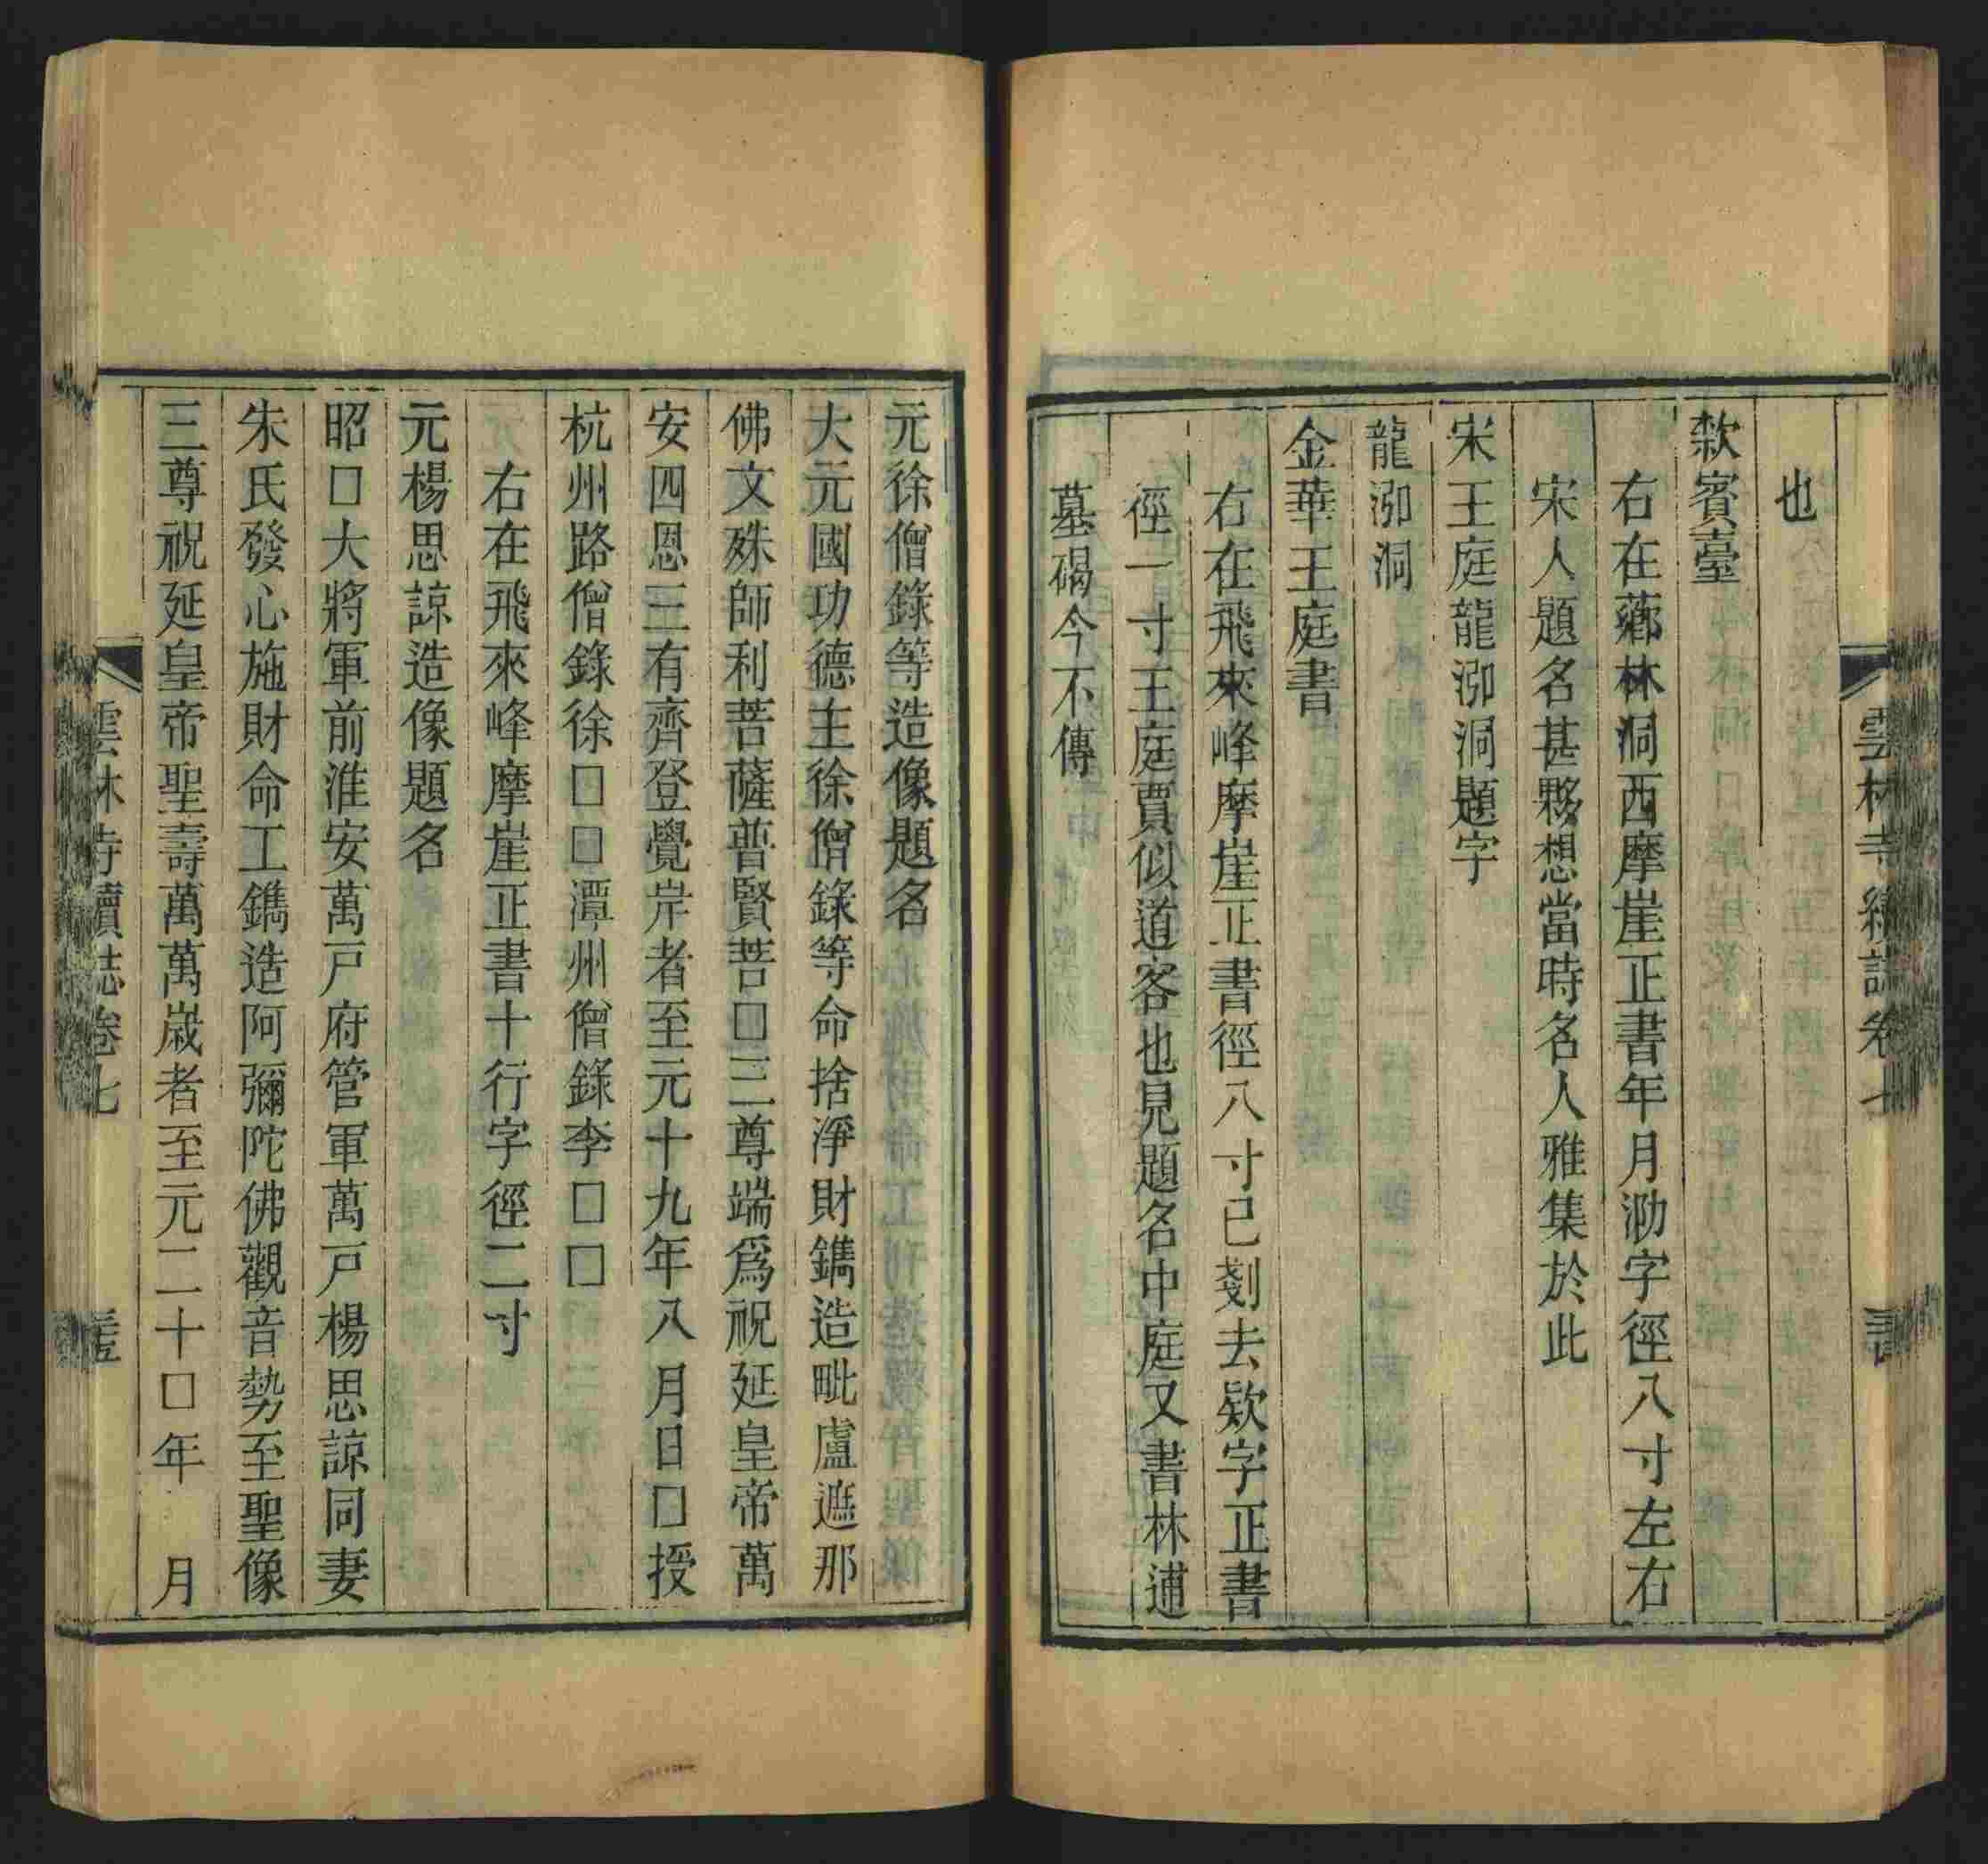 雲林寺續誌卷七
也
欵賓臺
右在薌林洞西摩崖正書年月泐字徑八寸左右
宋人題名甚夥想當時名人雅集於此
宋王庭龍泖洞題字
龍泖洞
金華王庭書
右在飛來峰摩崖正書徑八寸已剗去欵字正書
徑一寸王庭賈似道客也見題名中庭又書林逋
墓碣今不傳
元徐僧錄等造像題名
大元國功德主徐僧錄等命捨淨財鐫造毗盧遮那
佛文殊師利菩薩普賢菩□三尊端爲祝延皇帝萬
安四恩三有齊登覺岸者至元十九年八月日□授
杭州路僧錄徐□□潭州僧錄李□□
右在飛來峰摩崖正書十行字徑二寸
元楊思諒造像題名
昭□大將軍前淮安萬戸府管軍萬戸楊思諒同妻
朱氏發心施財命工鐫造阿彌陀佛觀音勢至聖像
三尊祝延皇帝聖壽萬萬歲者至元二十□年　月
雲林寺續誌卷七